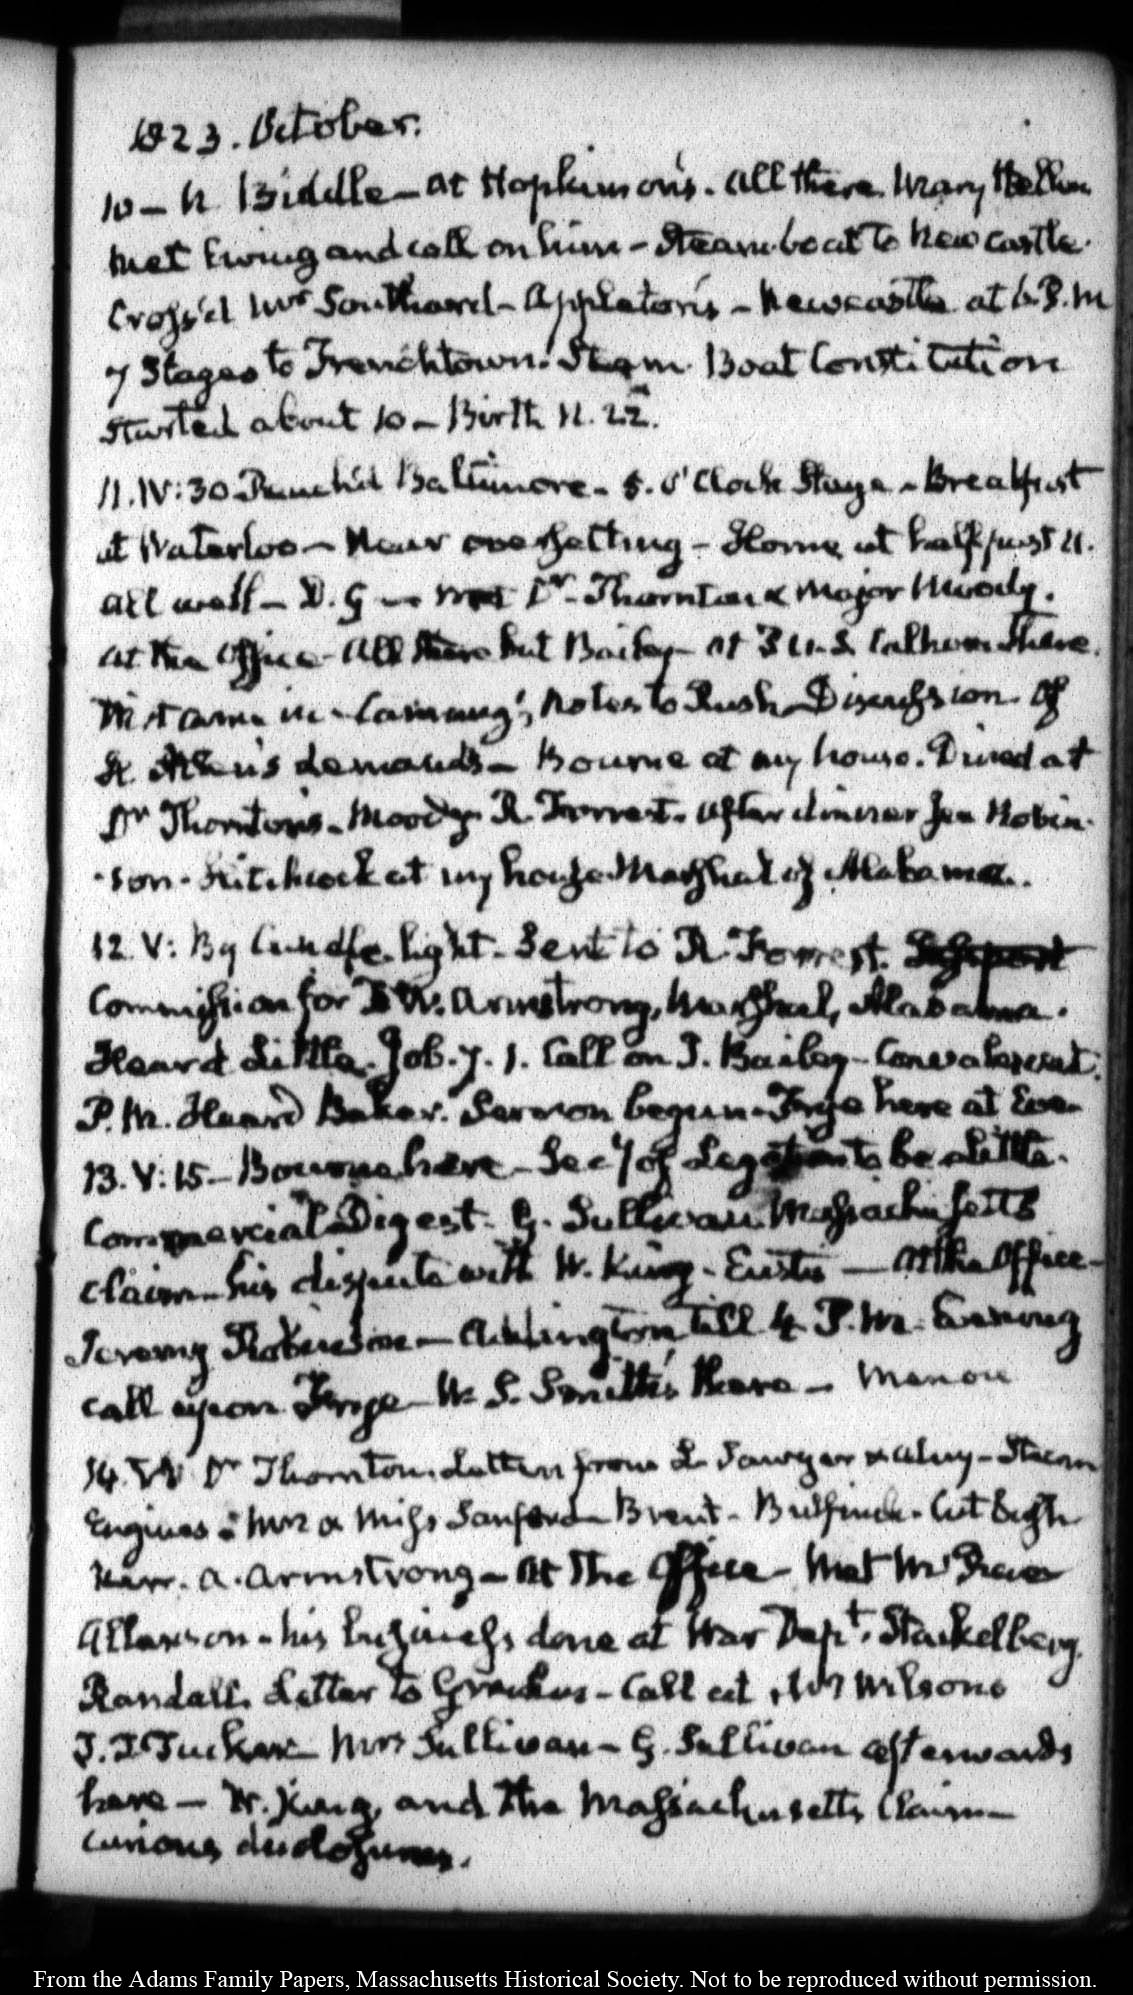 1823. October.
10 – N. Biddle – at Hopkinson's. All there. Mary Hellen
met Ewing and call on him – Steam-boat to New castle.
Cross'd Mrs Southard – Appleton's – Newcastle at 6. P.M
7 Stages to Frenchtown. Steam Boat Constitution
started about 10 – Birth N. 22.
11. IV:30 Reach'd Baltimore. 5. O'Clock Stage – Breakfast
at Waterloo – Near oversetting – Home at half past 11.
all well – D. G – met Dr. Thornton & Major Moody.
at the Office – All there but Bailey – At P U. S Calhoun there.
came in – Canning's, Notes to Rush – Discussion of
demands – Bourne at my house. Dined at
Dr Thornton's – Moody. R. Forrest. After dinner Jer. Robin-
-son – Hitchcock at my house Marshal of Alabama.
12. V: By Candle light – Sent to R. Forrest.
Commission for F. W. Armstrong, Marshal, Alabama.
Heard Little. Job. 7. 1. Call on J. Bailey – Convalescent.
P. M. Heard Baker. Sermon begun – Frye here at Eve.
13. V:15 – Bourne here – Secy of Legation to be a little.
Commercial Digest – G. Sullivan. Massachusetts
claim – his dispute with W. King – Eustis – At the Office –
Jeremy Robinson – Addington till 4 P.M. Evening
call upon Frye – W. S. Smith's there – Menou
14. VI: Dr Thornton. Letters from L. Sawyer & – Steam
Engines – Mrs & Miss Sanford – Brent – Bulfinch. Cutbush.
Kerr. A. Armstrong – At the Office – Met Mr
his business done at War Dept. Stackelberg.
Randall. Letter to Gracchus – Call at Mrs Wilsons
J. I. Tucker – Mrs Sullivan – G. Sullivan afterwards
here – W. King, and the Massachusetts Claim –
curious disclosures.
From the Adams Family Papers, Massachusetts Historical Society. Not to be reproduced without permission.